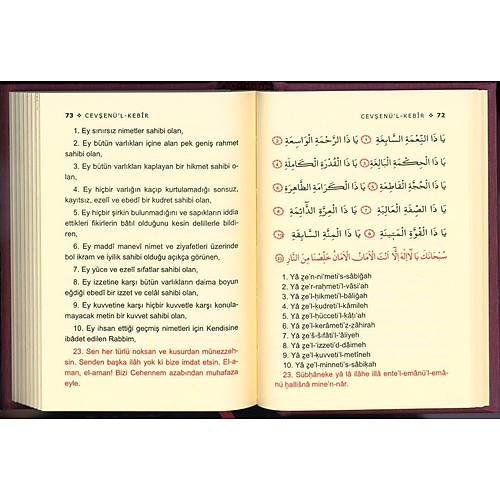 73 ❖ CEVŞENÜ'L-KEBÎR
1. Ey sınırsız nimetler sahibi olan,
2. Ey bütün varlıkları içine alan pek geniş rahmet
sahibi olan,
3. Ey bütün varlıkları kaplayan bir hikmet sahibi o-
lan,
4. Ey hiçbir varlığın kaçıp kurtulamadığı sonsuz,
kayıtsız, ezelî ve ebedî bir kudret sahibi olan,
5. Ey hiçbir şirkin bulunmadığını ve sapıkların iddia
ettikleri fikirlerin bâtıl olduğunu kesin delillerle bildi-
ren,
6. Ey maddî manevî nimet ve ziyafetleri üzerinde
bol ikram ve iyilik sahibi olduğu açıkça görünen,
7. Ey yüce ve ezelî sıfatlar sahibi olan,
8. Ey izzetine karşı bütün varlıkların daima boyun
eğdiği ebedî bir izzet ve celal sahibi olan,
9. Ey kuvvetine karşı hiçbir kuvvetle karşı konula-
mayacak metin bir kuvvet sahibi olan,
10. Ey ihsan ettiği geçmiş nimetler için Kendisine
ibâdet edilen Rabbim,
23. Sen her türlü noksan ve kusurdan münezzeh-
sin. Senden başka ilâh yok ki bize imdat etsin. El-a-
man, el-aman! Bizi Cehennem azabından muhafaza
eyle.
CEVŞENÜ'L-KEBÎR ❖ 72
يَا ذَا النِّعْمَةِ السَّابِغَةِ ١ يَا ذَا الرَّحْمَةِ الْوَاسِعَةِ ٢
يَا ذَا الْحِكْمَةِ الْبَالِغَةِ ٣ يَا ذَا الْقُدْرَةِ الْكَامِلَةِ ٤
يَا ذَا الْحُجَّةِ الْقَاطِعَةِ ٥ يَا ذَا الْكَرَامَةِ الظَّاهِرَةِ ٦
يَا ذَا الصِّفَةِ الْعَالِيَةِ ٧ يَا ذَا الْعِزَّةِ الدَّائِمَةِ ٨
يَا ذَا الْقُوَّةِ الْمَتِينَةِ ٩ يَا ذَا الْمِنَّةِ السَّابِقَةِ ١٠
سُبْحَانَكَ يَا لَا إِلٰهَ إِلَّا أَنْتَ الْأَمَانُ الْأَمَانُ خَلِّصْنَا مِنَ النَّارِ ٢٣
1. Yâ ẕe'n-ni'meti's-sâbiğah
2. Yâ ẕe'r-raḥmeti'l-vâsi'ah
3. Yâ ẕe'l-ḥikmeti'l-bâliğah
4. Yâ ẕe'l-ḳudreti'l-kâmileh
5. Yâ ẕe'l-ḥücceti'l-ḳâṭı'ah
6. Yâ ẕe'l-kerâmeti'ẓ-ẓâhirah
7. Yâ ẕe'ṣ-ṣıfati'l-'âliyeh
8. Yâ ẕe'l-'izzeti'd-dâimeh
9. Yâ ẕe'l-ḳuvveti'l-metîneh
10. Yâ ẕe'l-minneti's-sâbiḳah
23. Sübḥâneke yâ lâ ilâhe illâ ente'l-emânü'l-emâ-
nü ḫalliṣnâ mine'n-nâr.